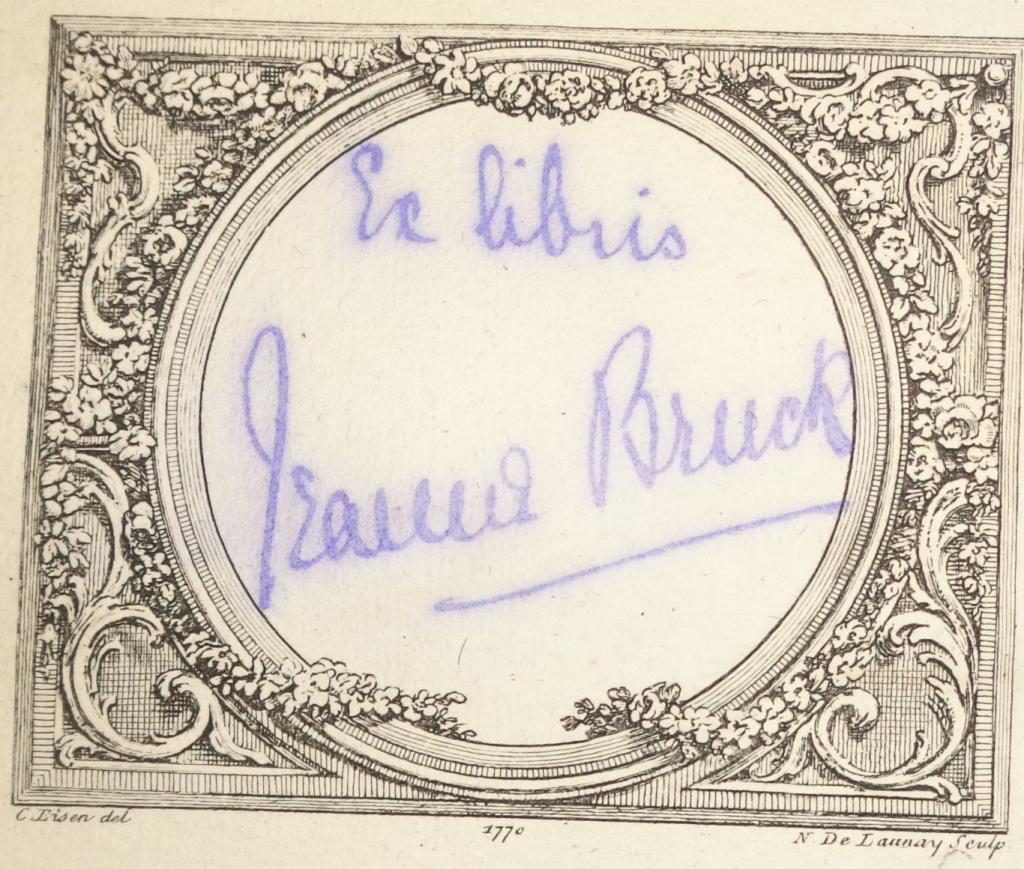 Ex libris
Jeanne Bruck
C. Eisen del
1770
N. De Launay Sculp